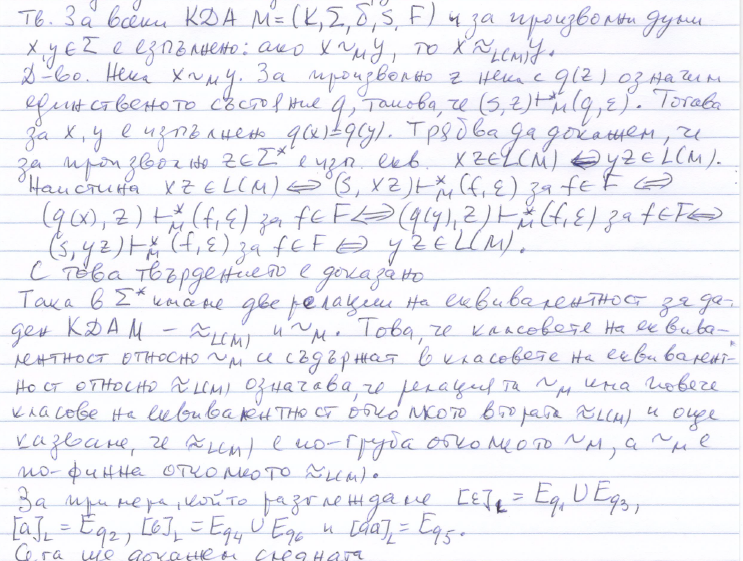 Тв. За всеки КДА M=(K,Σ,δ,s,F) и за произволни думи
x,y∈Σ е изпълнено: ако x~ₘy, то x≈L(M)y.
Д-во. Нека x~ₘy. За произволно z нека с q(z) означим
единственото състояние q, такова, че (s,z)⊢*ₘ(q,ε). Тогава
за x,y е изпълнено q(x)=q(y). Трябва да докажем, че
за произволно z∈Σ* е изп. екв. xz∈L(M)⇔yz∈L(M).
Наистина xz∈L(M)⇔(s,xz)⊢*ₘ(f,ε) за f∈F⇔
(q(x),z)⊢*ₘ(f,ε) за f∈F⇔(q(y),z)⊢*ₘ(f,ε) за f∈F⇔
(s,yz)⊢*ₘ(f,ε) за f∈F⇔ yz∈L(M).
С това твърдението е доказано
Така в Σ* имаме две релации на еквивалентност за да-
ден КДА M – ≈L(M) и ~ₘ. Това, че класовете на еквива-
лентност относно ~ₘ се съдържат в класовете на еквивалент-
ност относно ≈L(M) означава, че релацията ~ₘ има повече
класове на еквивалентност отколкото втората ≈L(M) и още
казваме, че ≈L(M) е по-груба отколкото ~ₘ, а ~ₘ е
по-финна отколкото ≈L(M).
За примера, който разглеждаме [ε]L = Eq₁ ∪ Eq₃,
[a]L = Eq₂, [b]L = Eq₄ ∪ Eq₆ и [aa]L = Eq₅.
Сега ще докажем следната